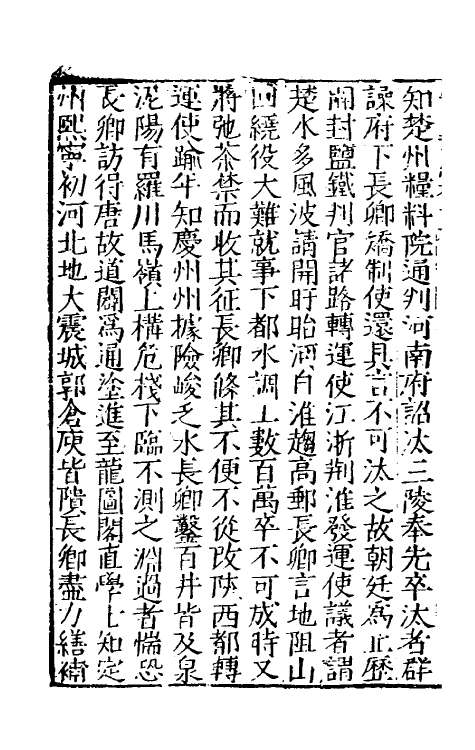 知楚州糧料院通判河南府詔汰三陵奉先卒汰者群
譟府下長卿矯制使還具言不可汰之故朝廷爲止歷
開封鹽鐵判官諸路轉運使江浙荆淮發運使議者謂
楚水多風波請開盱眙河自淮趨高郵長卿言地阻山
回繞役大難就事下都水調工數百萬卒不可成時又
將弛茶禁而收其征長卿條其不便不從改陝西都轉
運使踰年知慶州州據險峻乏水長卿鑿百井皆及泉
泥陽有羅川馬嶺上構危棧下臨不測之淵過者惴恐
長卿訪得唐故道闢爲通塗進至龍圖閣直學士知定
州熙寧初河北地大震城郭倉庾皆隤長卿盡力繕補